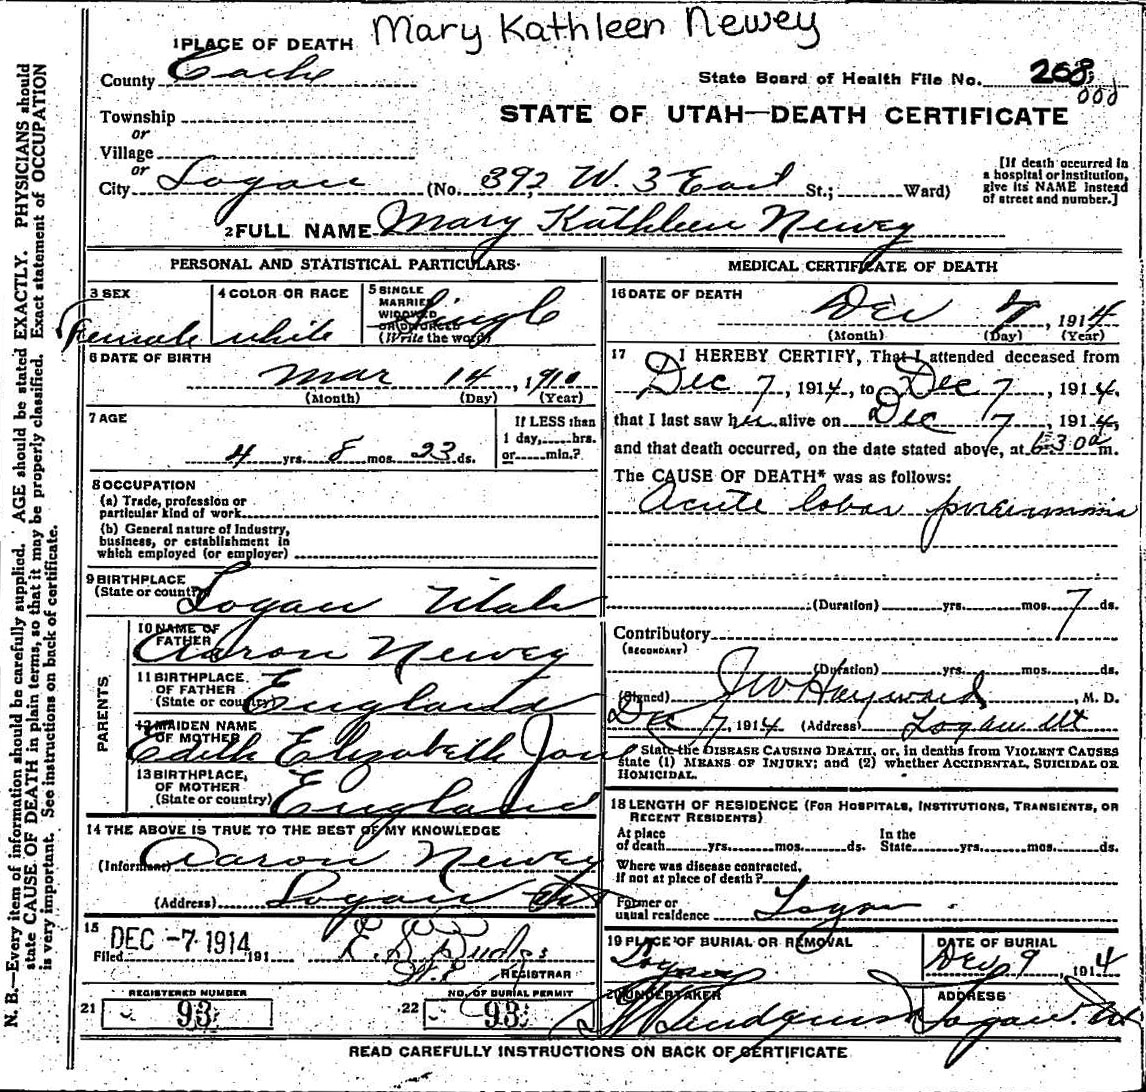 Mary Kathleen Newey
1 PLACE OF DEATH
County Cache
State Board of Health File No. 268
000
STATE OF UTAH—DEATH CERTIFICATE
Township
or
Village
or
City Logan (No. 392 W. 3 East St.; Ward)
[If death occurred in
a hospital or institution,
give its NAME instead
of street and number.]
2 FULL NAME Mary Kathleen Newey
PERSONAL AND STATISTICAL PARTICULARS
3 SEX
Female
4 COLOR OR RACE
white
5 SINGLE
MARRIED
WIDOWED
OR DIVORCED
(Write the word)
Single
6 DATE OF BIRTH
Mar 14, 1910
(Month) (Day) (Year)
7 AGE
4 yrs. 8 mos. 23 ds.
If LESS than
1 day, hrs.
or min.?
8 OCCUPATION
(a) Trade, profession or
particular kind of work
(b) General nature of Industry,
business, or establishment in
which employed (or employer)
9 BIRTHPLACE
(State or country)
Logan Utah
PARENTS
10 NAME OF
FATHER
Aaron Newey
11 BIRTHPLACE
OF FATHER
(State or country)
England
12 MAIDEN NAME
OF MOTHER
Edith Elizabeth
13 BIRTHPLACE
OF MOTHER
(State or country)
England
14 THE ABOVE IS TRUE TO THE BEST OF MY KNOWLEDGE
(Informant) Aaron Newey
(Address) Logan Ut
15
Filed DEC -7 1914 191
REGISTRAR
21 REGISTERED NUMBER
93
22 NO. OF BURIAL PERMIT
93
MEDICAL CERTIFICATE OF DEATH
16 DATE OF DEATH
Dec 7, 1914
(Month) (Day) (Year)
17 I HEREBY CERTIFY, That I attended deceased from
Dec 7, 1914, to Dec 7, 1914,
that I last saw her alive on Dec 7, 1914,
and that death occurred, on the date stated above, at 630a m.
The CAUSE OF DEATH* was as follows:
Acute lobar pneumonia
(Duration) yrs. mos. 7 ds.
Contributory
(SECONDARY)
(Duration) yrs. mos. ds.
(Signed) J W Hayward, M. D.
Dec 7, 1914 (Address) Logan Ut
State the DISEASE CAUSING DEATH, or, in deaths from VIOLENT CAUSES
state (1) MEANS OF INJURY; and (2) whether ACCIDENTAL, SUICIDAL OR
HOMICIDAL.
18 LENGTH OF RESIDENCE (FOR HOSPITALS, INSTITUTIONS, TRANSIENTS, OR
RECENT RESIDENTS)
At place
of death yrs. mos. ds.
In the
State yrs. mos. ds.
Where was disease contracted,
if not at place of death?
Former or
usual residence Logan
19 PLACE OF BURIAL OR REMOVAL
Logan
DATE OF BURIAL
Dec 9, 1914
20 UNDERTAKER
ADDRESS
Logan. Ut
READ CAREFULLY INSTRUCTIONS ON BACK OF CERTIFICATE
N. B.—Every item of information should be carefully supplied. AGE should be stated EXACTLY. PHYSICIANS should
state CAUSE OF DEATH in plain terms, so that it may be properly classified. Exact statement of OCCUPATION
is very important. See instructions on back of certificate.